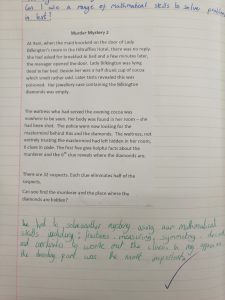 Can I use a range of mathematical skills to solve problems
in text?
Murder Mystery 2
At 9am, when the maid knocked on the door of Lady
Bilkington's room in the Hitruffles Hotel, there was no reply.
She had asked for breakfast in bed and a few minutes later,
the manager opened the door. Lady Bilkington was lying
dead in her bed. Beside her was a half drunk cup of cocoa
which smelt rather odd. Later tests revealed this was
poisoned. Her jewellery case containing the Bilkington
diamonds was empty.
The waitress who had served the evening cocoa was
nowhere to be seen. Her body was found in her room – she
had been shot. The police were now looking for the
mastermind behind this and the diamonds. The waitress, not
entirely trusting the mastermind had left hidden in her room,
6 clues in code. The first five give helpful facts about the
murderer and the 6th clue reveals where the diamonds are.
There are 32 suspects. Each clue eliminates half of the
suspects.
Can you find the murderer and the place where the
diamonds are hidden?
We had to solve another mystery using our mathematical
skills including: fractions, measuring, symmetry,
and coordinates to work out the clues. In my opinion
the decoding part was the most